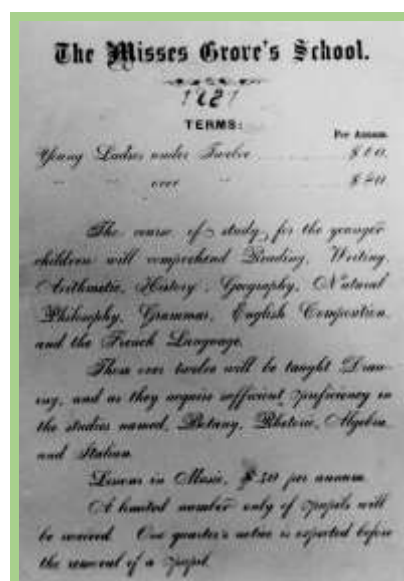 The Misses Grove's School.
TERMS:
Per Annum.
Young Ladies under Twelve
" " over "
The course of study, for the younger
children will comprehend Reading, Writing,
Arithmetic, History, Geography, Natural
Philosophy, Grammar, English Composition
and the French Language.
Those over twelve will be taught Draw-
ing, and as they acquire sufficient proficiency in
the studies named, Botany, Rhetoric, Algebra
and Italian.
Lessons in Music, per annum.
A limited number only of pupils will
be received. One quarter's notice is expected before
the removal of a pupil.